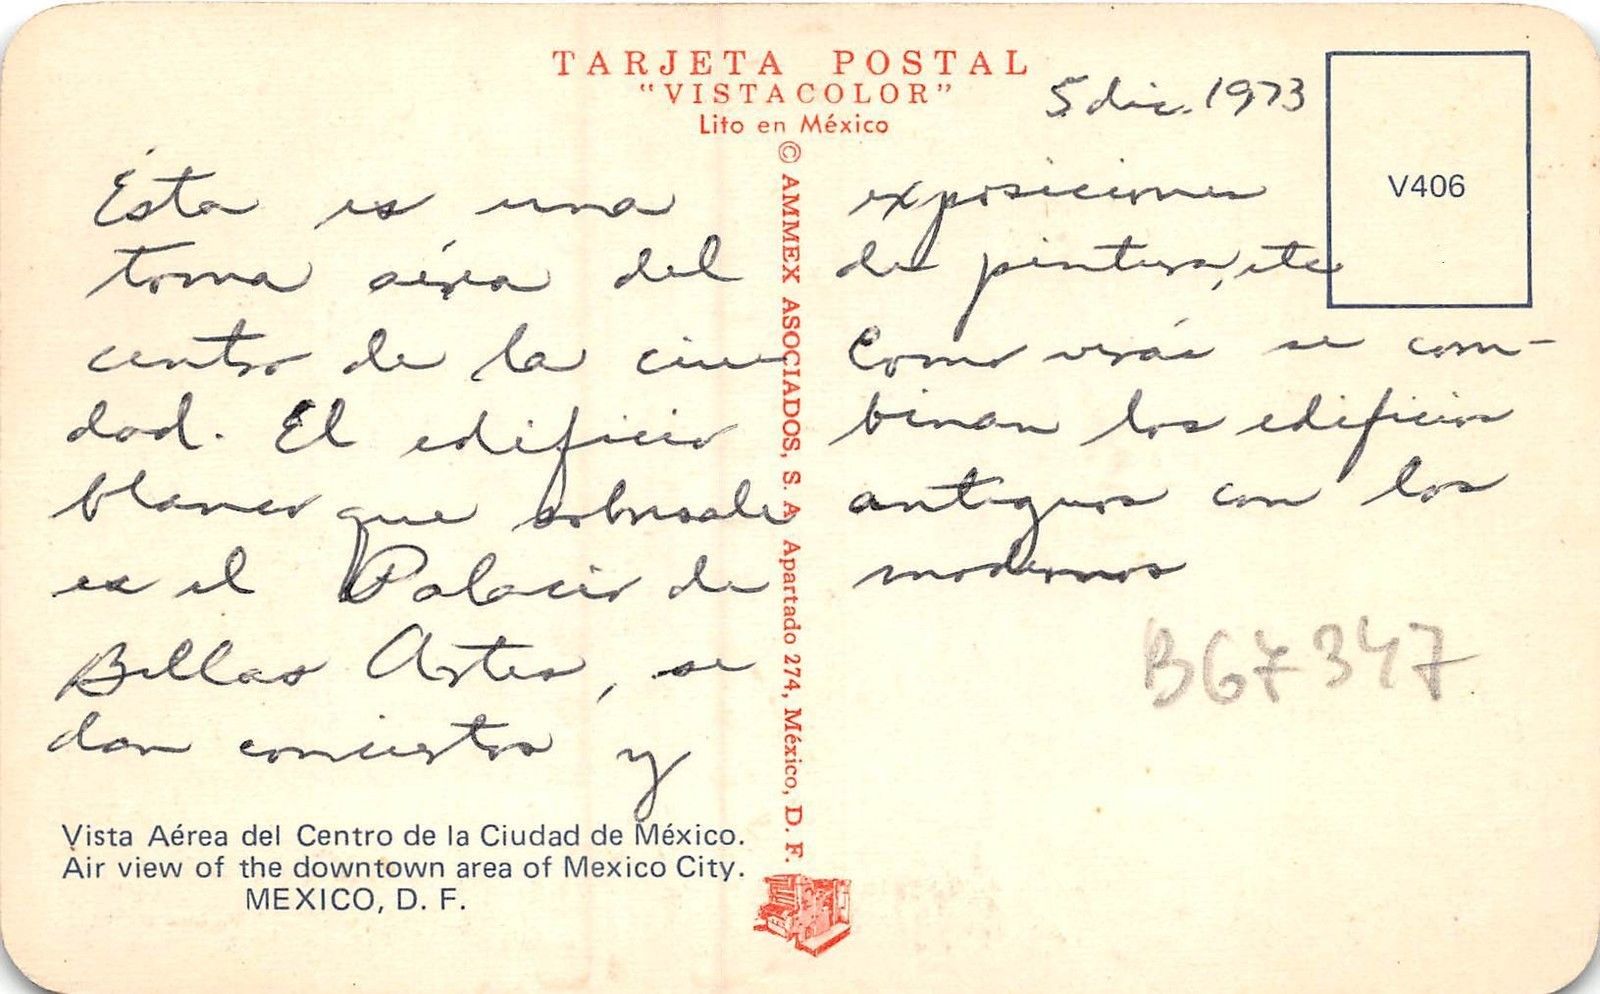 TARJETA POSTAL
"VISTACOLOR"
Lito en México
5 dic. 1973
V406
Ésta es una
toma aérea del
centro de la ciu-
dad. El edificio
blanco que sobresale
es el Palacio de
Bellas Artes, se
dan conciertos y
exposiciones
de pintura, etc
Como verás se com-
binan los edificios
antiguos con los
modernos
B67347
© AMMEX ASOCIADOS, S. A. Apartado 274, México, D. F.
Vista Aérea del Centro de la Ciudad de México.
Air view of the downtown area of Mexico City.
MEXICO, D. F.